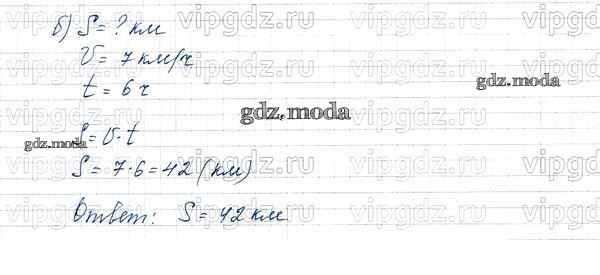 б) S = ? км
V = 7 км/ч
t = 6 ч
S = V · t
S = 7 · 6 = 42 (км)
Ответ: S = 42 км
gdz.moda
gdz.moda
gdz.moda
vipgdz.ru vipgdz.ru vipgdz.ru
vipgdz.ru vipgdz.ru vipgdz.ru
vipgdz.ru vipgdz.ru vipgdz.ru
vipgdz.ru vipgdz.ru vipgdz.ru